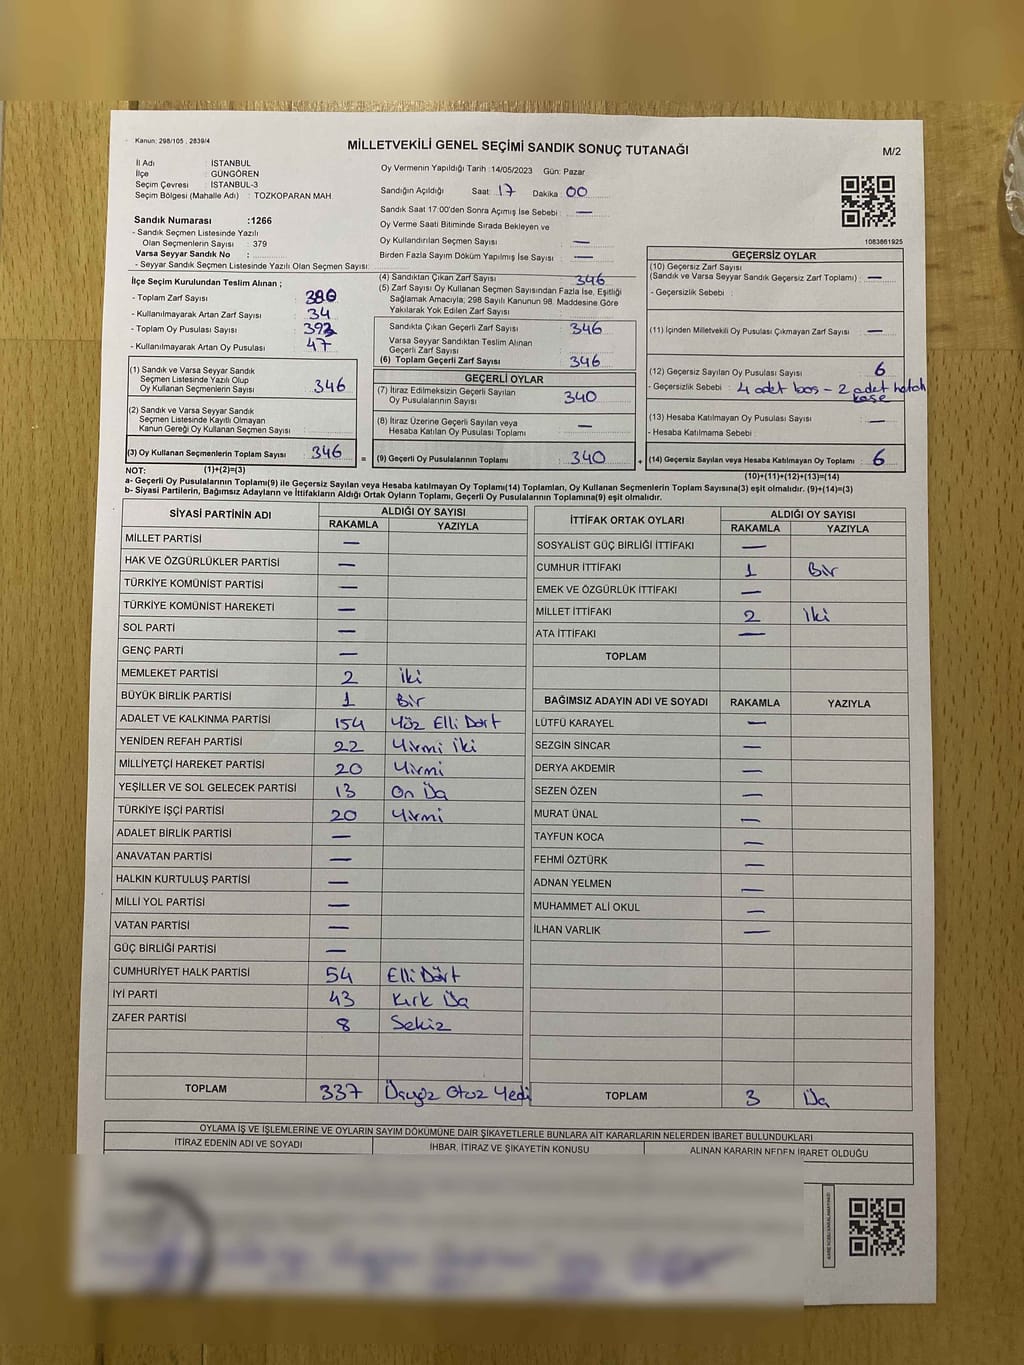 Kanun: 298/105 , 2839/4
MİLLETVEKİLİ GENEL SEÇİMİ SANDIK SONUÇ TUTANAĞI
M/2
İl Adı : İSTANBUL
İlçe : GÜNGÖREN
Seçim Çevresi : İSTANBUL-3
Seçim Bölgesi (Mahalle Adı) : TOZKOPARAN MAH.
Sandık Numarası :1266
- Sandık Seçmen Listesinde Yazılı
Olan Seçmenlerin Sayısı : 379
Varsa Seyyar Sandık No :
- Seyyar Sandık Seçmen Listesinde Yazılı Olan Seçmen Sayısı:
Oy Vermenin Yapıldığı Tarih :14/05/2023 Gün: Pazar
Sandığın Açıldığı Saat: 17 Dakika: 00
Sandık Saat 17:00'den Sonra Açımış İse Sebebi : —
Oy Verme Saati Bitiminde Sırada Bekleyen ve
Oy Kullandırılan Seçmen Sayısı : —
Birden Fazla Sayım Döküm Yapılmış İse Sayısı : —
1083661925
İlçe Seçim Kurulundan Teslim Alınan ;
- Toplam Zarf Sayısı : 380
- Kullanılmayarak Artan Zarf Sayısı : 34
- Toplam Oy Pusulası Sayısı : 393
- Kullanılmayarak Artan Oy Pusulası : 47
(1) Sandık ve Varsa Seyyar Sandık
Seçmen Listesinde Yazılı Olup
Oy Kullanan Seçmenlerin Sayısı : 346
(2) Sandık ve Varsa Seyyar Sandık
Seçmen Listesinde Kayıtlı Olmayan
Kanun Gereği Oy Kullanan Seçmen Sayısı :
(3) Oy Kullanan Seçmenlerin Toplam Sayısı : 346
(1)+(2)=(3)
(4) Sandıktan Çıkan Zarf Sayısı : 346
(5) Zarf Sayısı Oy Kullanan Seçmen Sayısından Fazla İse, Eşitliği
Sağlamak Amacıyla; 298 Sayılı Kanunun 98. Maddesine Göre
Yakılarak Yok Edilen Zarf Sayısı :
Sandıkta Çıkan Geçerli Zarf Sayısı : 346
Varsa Seyyar Sandıktan Teslim Alınan
Geçerli Zarf Sayısı :
(6) Toplam Geçerli Zarf Sayısı : 346
GEÇERLİ OYLAR
(7) İtiraz Edilmeksizin Geçerli Sayılan
Oy Pusulalarının Sayısı : 340
(8) İtiraz Üzerine Geçerli Sayılan veya
Hesaba Katılan Oy Pusulası Toplamı : —
= (9) Geçerli Oy Pusulalarının Toplamı : 340
GEÇERSİZ OYLAR
(10) Geçersiz Zarf Sayısı
(Sandık ve Varsa Seyyar Sandık Geçersiz Zarf Toplamı) : —
- Geçersizlik Sebebi :
(11) İçinden Milletvekili Oy Pusulası Çıkmayan Zarf Sayısı : —
(12) Geçersiz Sayılan Oy Pusulası Sayısı : 6
- Geçersizlik Sebebi : 4 adet boş - 2 adet hatalı
kaşe
(13) Hesaba Katılmayan Oy Pusulası Sayısı : —
- Hesaba Katılmama Sebebi :
+ (14) Geçersiz Sayılan veya Hesaba Katılmayan Oy Toplamı : 6
(10)+(11)+(12)+(13)=(14)
NOT:
a- Geçerli Oy Pusulalarının Toplamı(9) ile Geçersiz Sayılan veya Hesaba Katılmayan Oy Toplamı(14) Toplamları, Oy Kullanan Seçmenlerin Toplam Sayısına(3) eşit olmalıdır. (9)+(14)=(3)
b- Siyasi Partilerin, Bağımsız Adayların ve İttifakların Aldığı Ortak Oyların Toplamı, Geçerli Oy Pusulalarının Toplamına(9) eşit olmalıdır.
SİYASİ PARTİNİN ADI ALDIĞI OY SAYISI
RAKAMLA YAZIYLA
MİLLET PARTİSİ —
HAK VE ÖZGÜRLÜKLER PARTİSİ —
TÜRKİYE KOMÜNİST PARTİSİ —
TÜRKİYE KOMÜNİST HAREKETİ —
SOL PARTİ —
GENÇ PARTİ —
MEMLEKET PARTİSİ 2 İki
BÜYÜK BİRLİK PARTİSİ 1 Bir
ADALET VE KALKINMA PARTİSİ 154 Yüz Elli Dört
YENİDEN REFAH PARTİSİ 22 Yirmi iki
MİLLİYETÇİ HAREKET PARTİSİ 20 Yirmi
YEŞİLLER VE SOL GELECEK PARTİSİ 13 On Üç
TÜRKİYE İŞÇİ PARTİSİ 20 Yirmi
ADALET BİRLİK PARTİSİ —
ANAVATAN PARTİSİ —
HALKIN KURTULUŞ PARTİSİ —
MİLLİ YOL PARTİSİ —
VATAN PARTİSİ —
GÜÇ BİRLİĞİ PARTİSİ —
CUMHURİYET HALK PARTİSİ 54 Elli Dört
İYİ PARTİ 43 Kırk Üç
ZAFER PARTİSİ 8 Sekiz
TOPLAM 337 Üçyüz Otuz Yedi
İTTİFAK ORTAK OYLARI ALDIĞI OY SAYISI
RAKAMLA YAZIYLA
SOSYALİST GÜÇ BİRLİĞİ İTTİFAKI —
CUMHUR İTTİFAKI 1 Bir
EMEK VE ÖZGÜRLÜK İTTİFAKI —
MİLLET İTTİFAKI 2 İki
ATA İTTİFAKI —
TOPLAM
BAĞIMSIZ ADAYIN ADI VE SOYADI RAKAMLA YAZIYLA
LÜTFÜ KARAYEL —
SEZGİN SİNCAR —
DERYA AKDEMİR —
SEZEN ÖZEN —
MURAT ÜNAL —
TAYFUN KOCA —
FEHMİ ÖZTÜRK —
ADNAN YELMEN —
MUHAMMET ALİ OKUL —
İLHAN VARLIK —
TOPLAM 3 Üç
OYLAMA İŞ VE İŞLEMLERİNE VE OYLARIN SAYIM DÖKÜMÜNE DAİR ŞİKAYETLERLE BUNLARA AİT KARARLARIN NELERDEN İBARET BULUNDUKLARI
İTİRAZ EDENİN ADI VE SOYADI İHBAR, İTİRAZ VE ŞİKAYETİN KONUSU ALINAN KARARIN NEDEN İBARET OLDUĞU